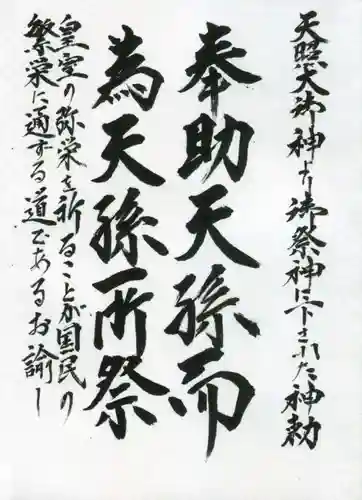 天照大御神より御祭神に下された神勅
奉助天孫而
為天孫所祭
皇室の弥栄を祈ることが国民の
繁栄に通ずる道であるお諭し